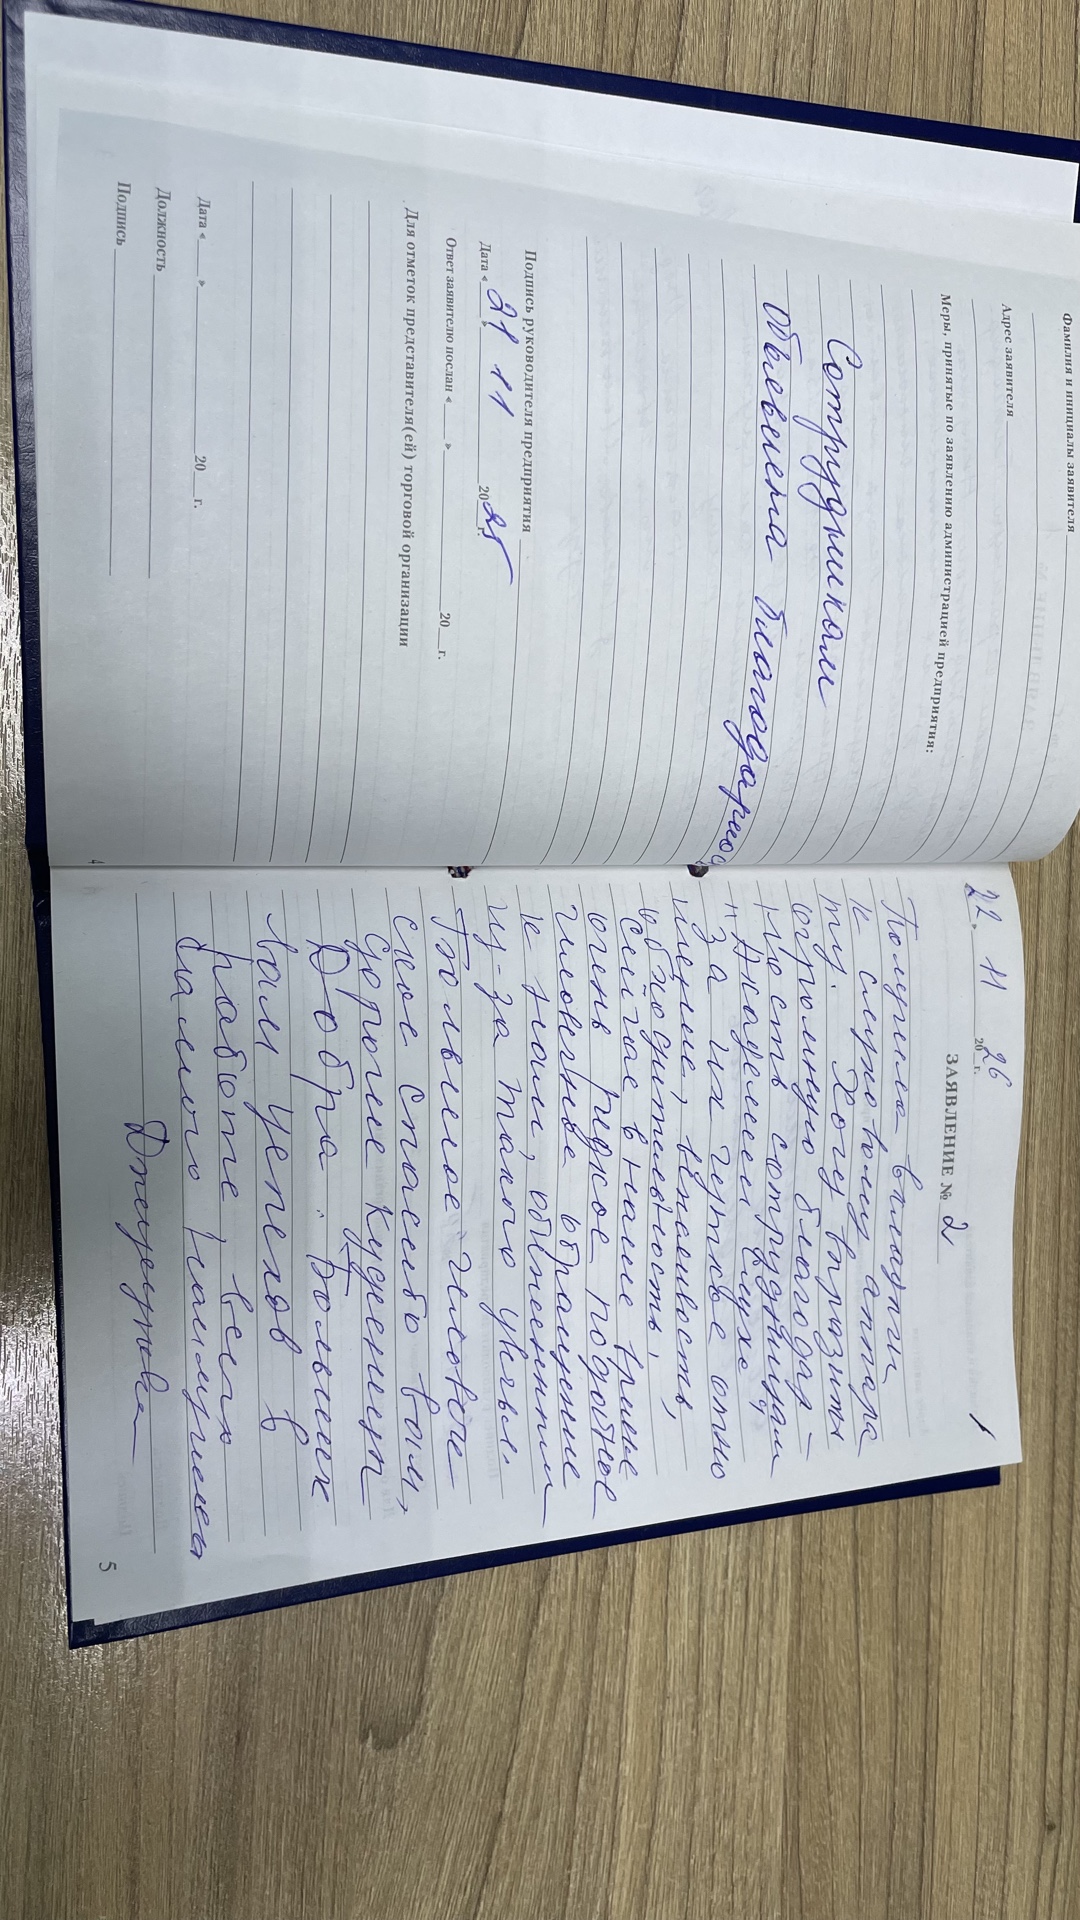 Фамилия и инициалы заявителя
Адрес заявителя
Меры, принятые по заявлению администрацией предприятия:
Сотрудникам
объевлена благодарнос
Подпись руководителя предприятия
Дата « 21 » 11 2025 г.
Ответ заявителю послан « » 20 г.
Для отметок представителя(ей) торговой организации
Дата « » 20 г.
Должность
Подпись
4
ЗАЯВЛЕНИЕ № 2
22 » 11 20 26 г.
Получила вкладыши
к слуховому аппара
ту. Хочу выразить
огромную благодар-
ность сотрудницам
"Академии слуха",
За их чуткое отно
шение, вежливость,
обходительность,
Сейчас в наше время
очень редкое подобное
человечье обращение
к нам, обиженным
из-за такого увечья.
Громадное человече
ское спасибо вам,
дорогие
Добра. Больших
вам успехов в
работе всего
самого наилучшего